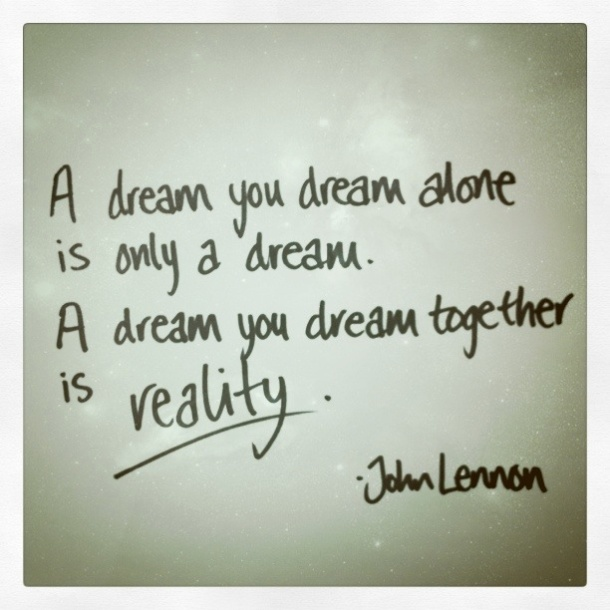 A dream you dream alone
is only a dream.
A dream you dream together
is reality.
-John Lennon